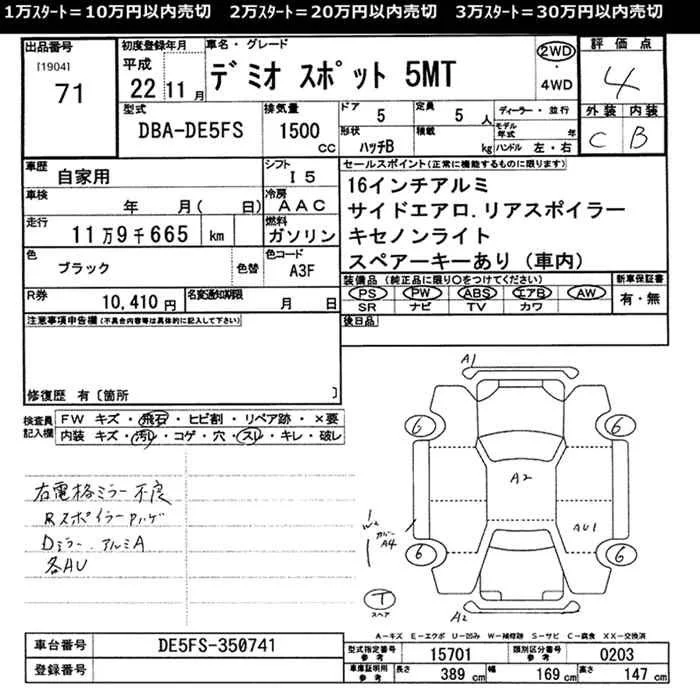 1万ｽﾀｰﾄ＝10万円以内売切　2万ｽﾀｰﾄ＝20万円以内売切　3万ｽﾀｰﾄ＝30万円以内売切
出品番号
[1904]
71
初度登録年月
平成
22 11月
車名・グレード
ﾃﾞﾐｵ ｽﾎﾟｯﾄ 5MT
2WD
・
4WD
評価点
4
外装 内装
C B
型式
DBA-DE5FS
排気量
1500
CC
ドア
5
定員
5 人
形状
ハッチB
積載
kg
ディーラー・並行
モデル年式 年
ハンドル 左・右
車歴
自家用
シフト
I5
車検
年 月( 日)
冷房
AAC
走行
11万9千665 km
燃料
ガソリン
色
ブラック
色替
色コード
A3F
R券
10,410円
名変通知期限
月 日
セールスポイント(正常に機能するものに限ります)
16インチアルミ
サイドエアロ．リアスポイラー
キセノンライト
スペアーキーあり（車内）
装備品（純正品に限り○をつけてください）
PS PW ABS エアB AW
SR ナビ TV カワ
新車保証書
有・無
後日品
注意事項申告欄(不具合内容等は具体的に記入して下さい)
修復歴 有〔箇所 〕
検査員記入欄
FW キズ・飛石・ヒビ割・リペア跡・×要
内装 キズ・汚れ・コゲ・穴・スレ・キレ・破レ
右電格ミラー不良
Rスポイラーハゲ
Dミラー、アルミA
各AU
A1
6
6
A2
AU1
W2
カバー
A4
6
6
T
スペア
A2
A－キズ E－エクボ U－凹み W－補修跡 S－サビ C－腐食 XX－交換済
車台番号
DE5FS-350741
登録番号
型式指定番号参考
15701
類別区分番号参考
0203
車庫証明用参考
長さ 389 cm 幅 169 cm 高さ 147 cm